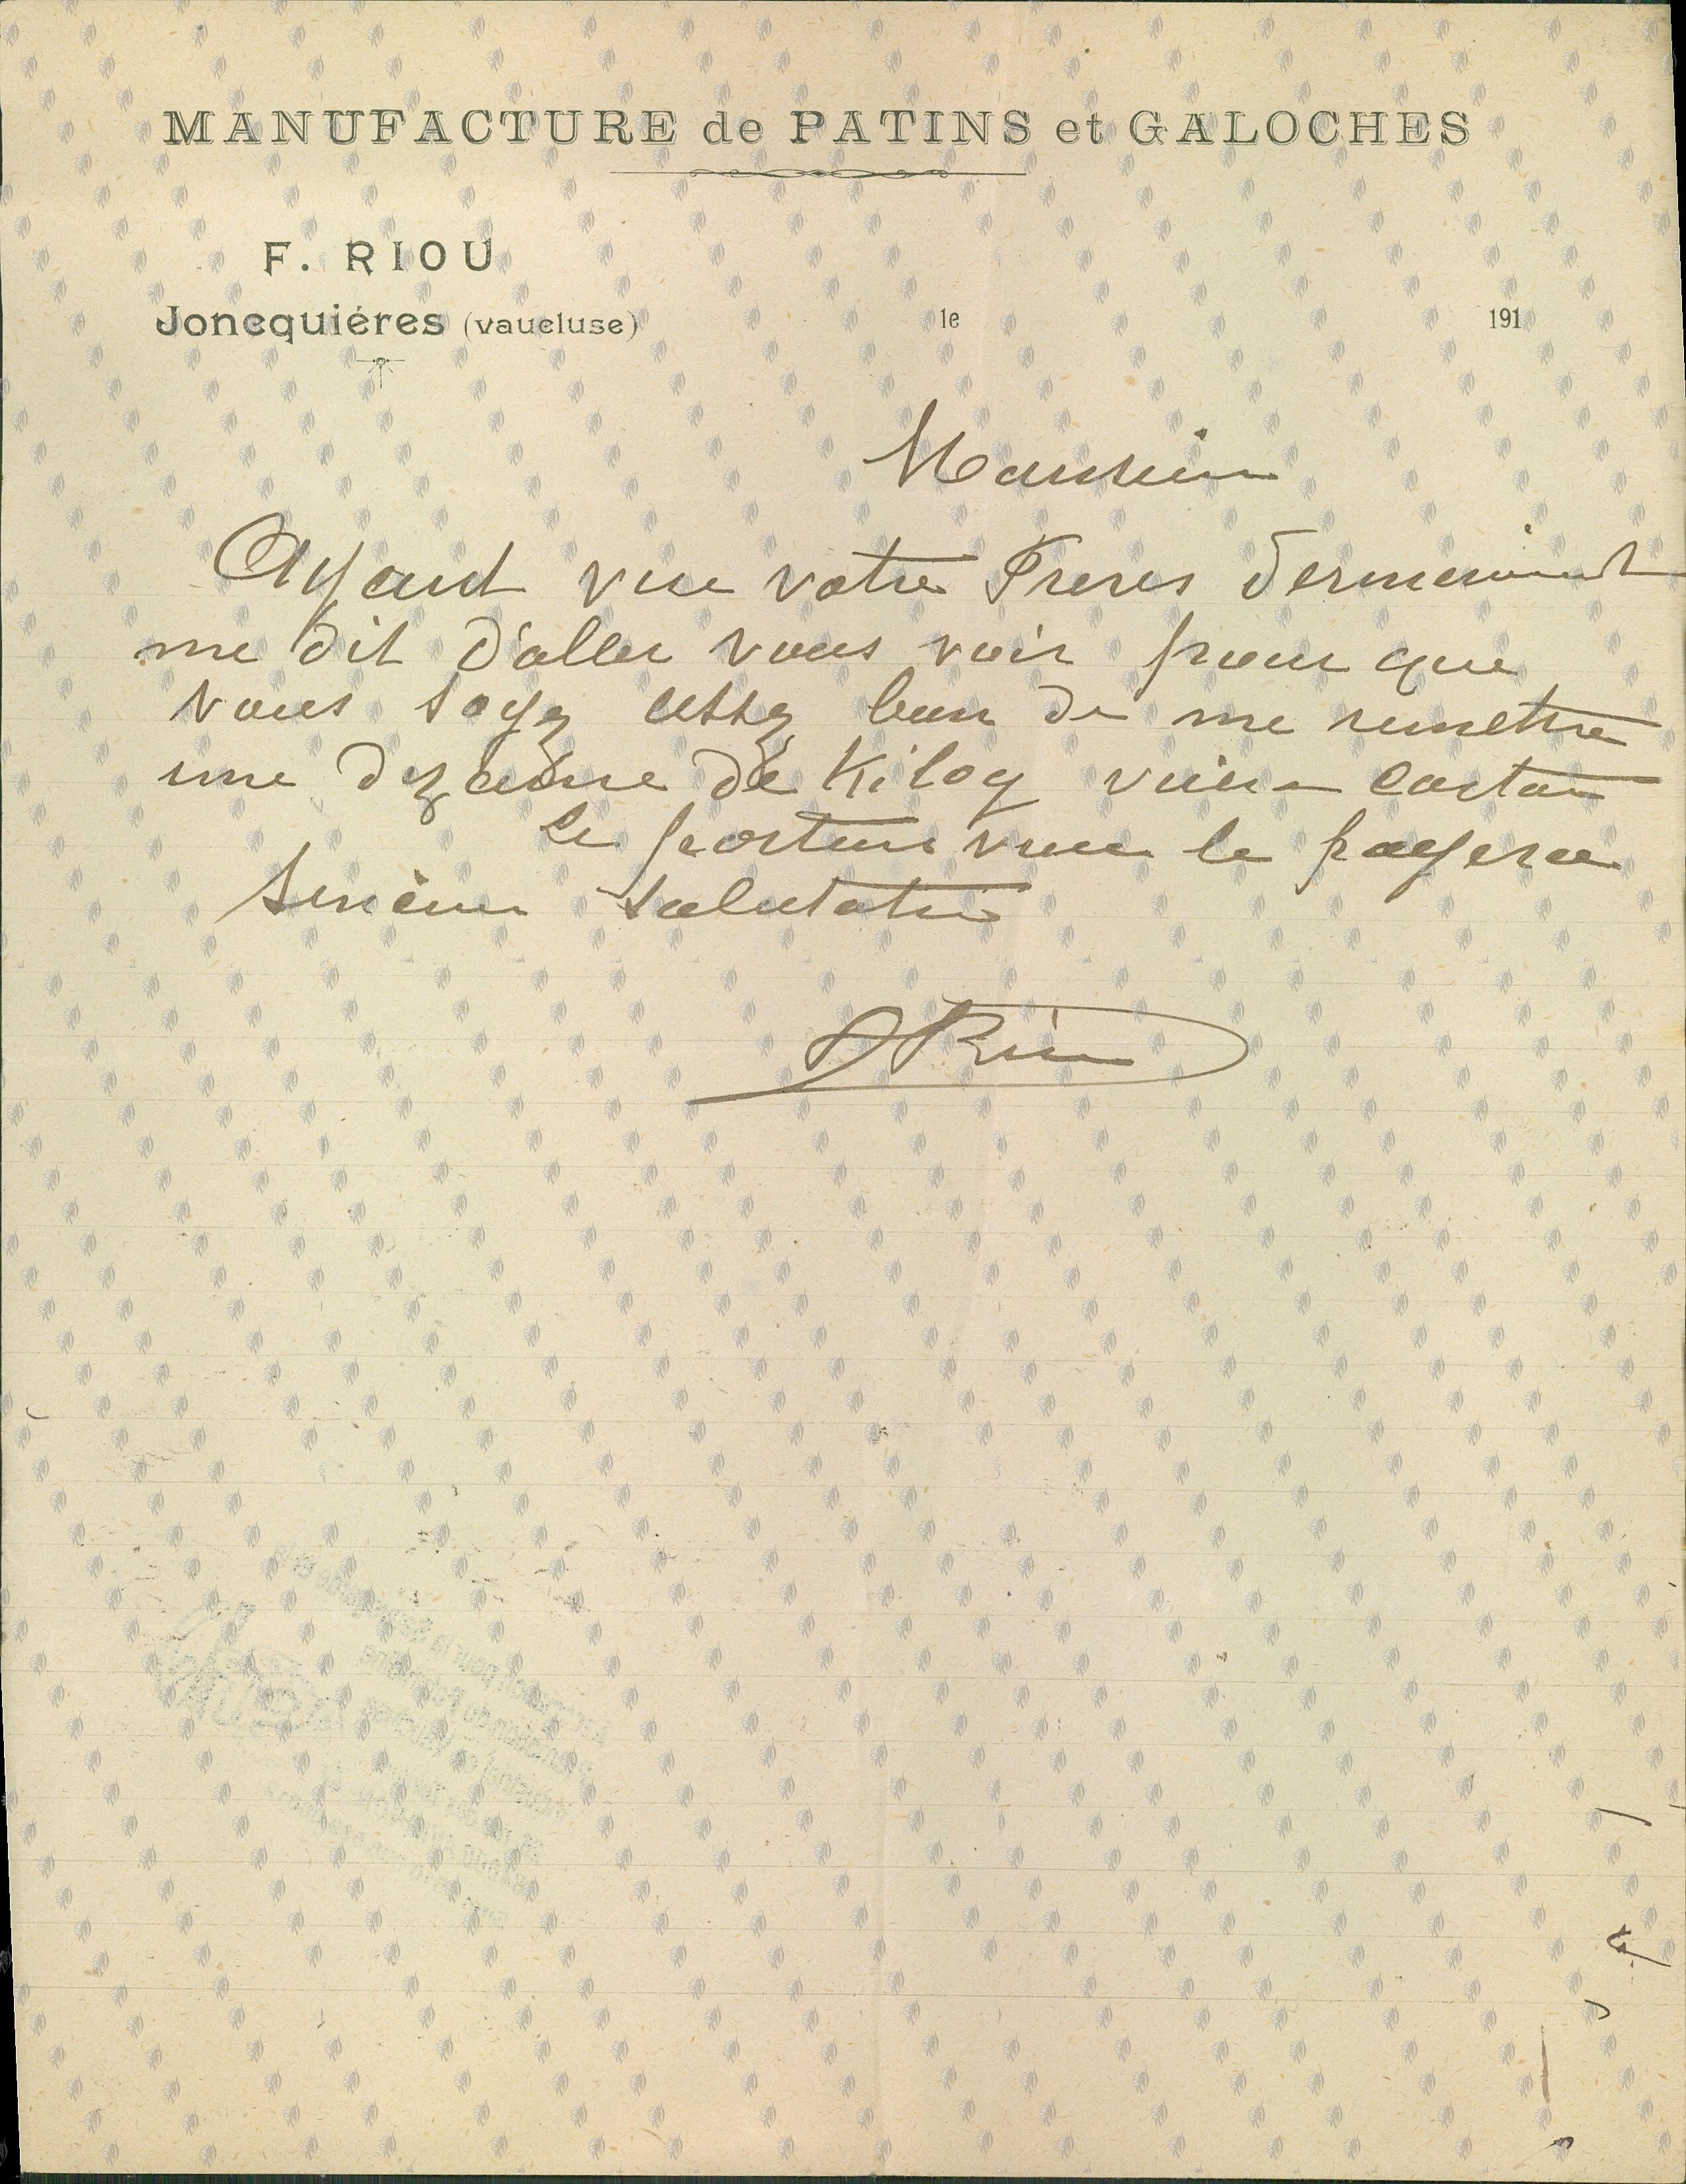 MANUFACTURE de PATINS et GALOCHES
F. RIOU
Joncquiéres (vaucluse)
le 191
Monsieur
Ayant vue votre Freres dernierement
me dit d'aller vous voir pour que
vous soyez assez bon de me remettre
une dizaine de Kilog vieux carton
Le porteur vous le payera
Sincères Salutation
Riou